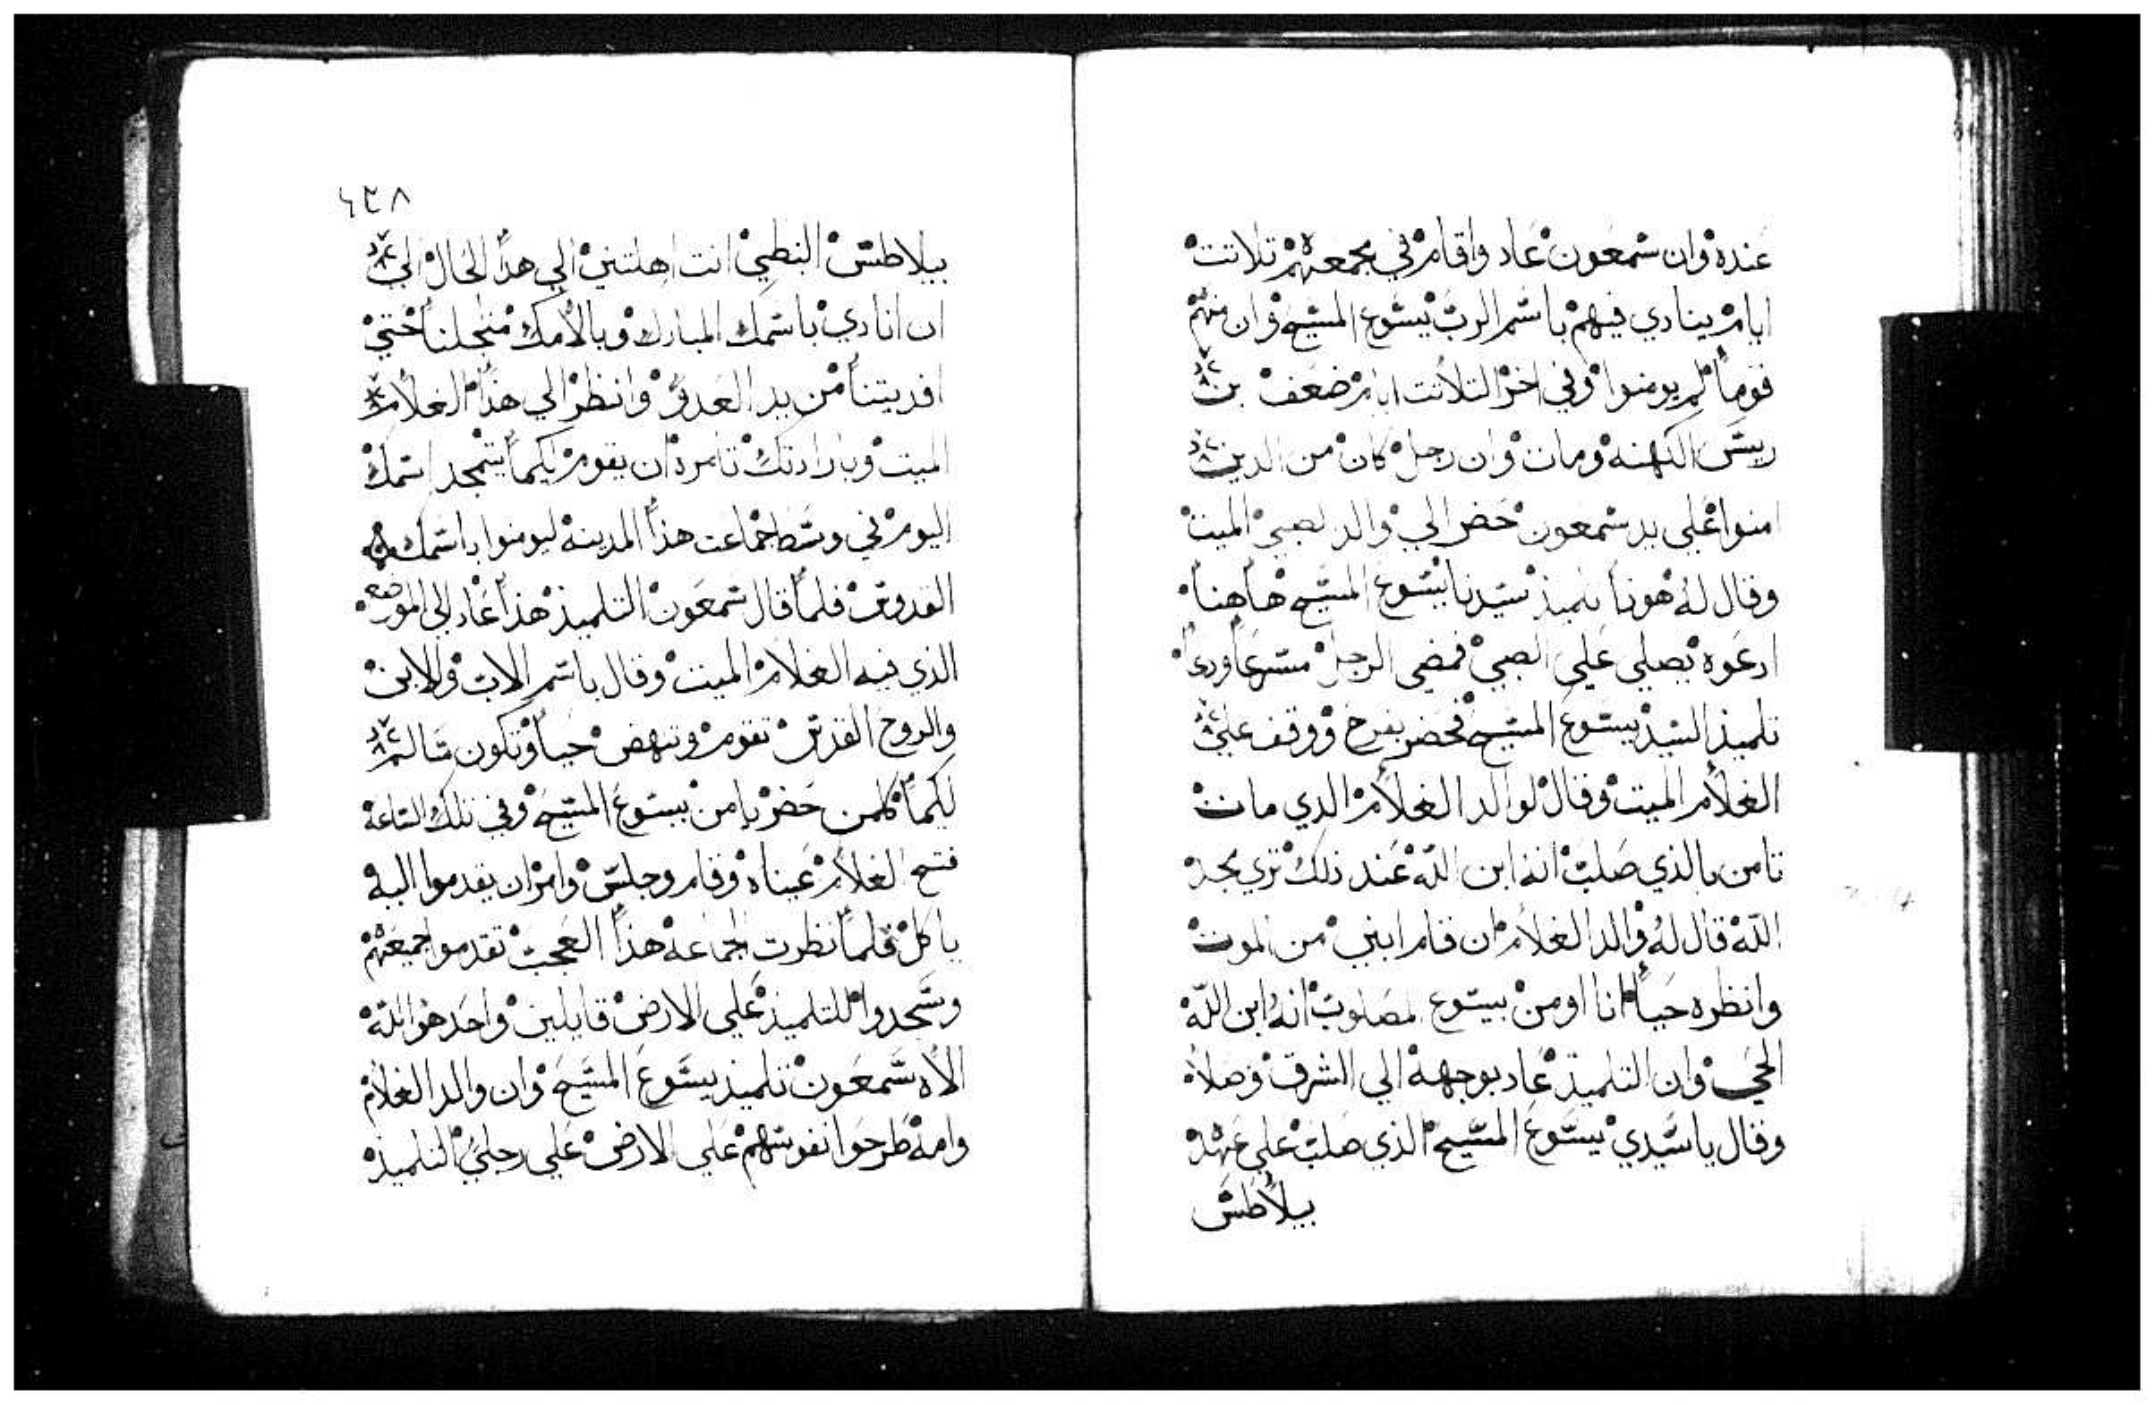 عنده وان سمعون عاد واقام في مجمعهم تلاتت
ايام ينادي فيهم باسم الرب يسوع المسيح وان منهم
قوماً لم يومنوا وفي اخر التلاتت ايام ضعف بن
ريس الكهنه ومات وان رجل كان من الدين
امنوا علي يد سمعون حضر الي والد لصبي الميت
وقال له هوذا تلميذ سيدنا يسوع المسيح هاهنا
ادعوه يصلي علي الصبي فمضي الرجل مسرعاً ودعا
تلميذ السيد يسوع المسيح فحضر بفرح ووقف علي
الغلام الميت وقال لوالد الغلام الدي مات
تامن بالذي صلب انه ابن الله عند ذلك تري مجد
الله قال له والد الغلام ان قام ابني من الموت
وانظره حياً انا اومن بيسوع لمصلوب انه ابن الله
الحي وان التلميذ عاد بوجهه الي الشرق وصلا
وقال ياسيدي يسوع المسيح الذي صلب علي عهد
بيلاطس
٤٢٨
بيلاطس النبطي انت اهلتني الي هذا الحال الي
ان انادي باسمك المبارك وبالامك من اجلنا حتي
افديتنا من يد العدو وانظر الي هذا الغلام
الميت وبارادتك تامره ان يقوم لكيما يتمجد اسمك
اليوم في وسط جماعت هذا المدينه ليومنوا باسمك
القدوس فلما قال سمعون التلميذ هذا عاد الي الموضع
الذي فيه الغلام الميت وقال باسم الاب والابن
والروح القدس تقوم وتنهض حياً وتكون سالم
لكيما كلمن حضر يامن بيسوع المسيح وفي تلك الساعه
فتح الغلام عيناه وقام وجلس وامر ان يقدموا اليه
ياكل فلما نظرت الجماعه هذا العجب تقدموا جميعهم
وسجدوا للتلميذ علي الارض قايلين واحد هو الله
الاه سمعون تلميذ يسوع المسيح وان والد الغلام
وامه طرحوا نفوسهم علي الارض علي رجلي التلميذ